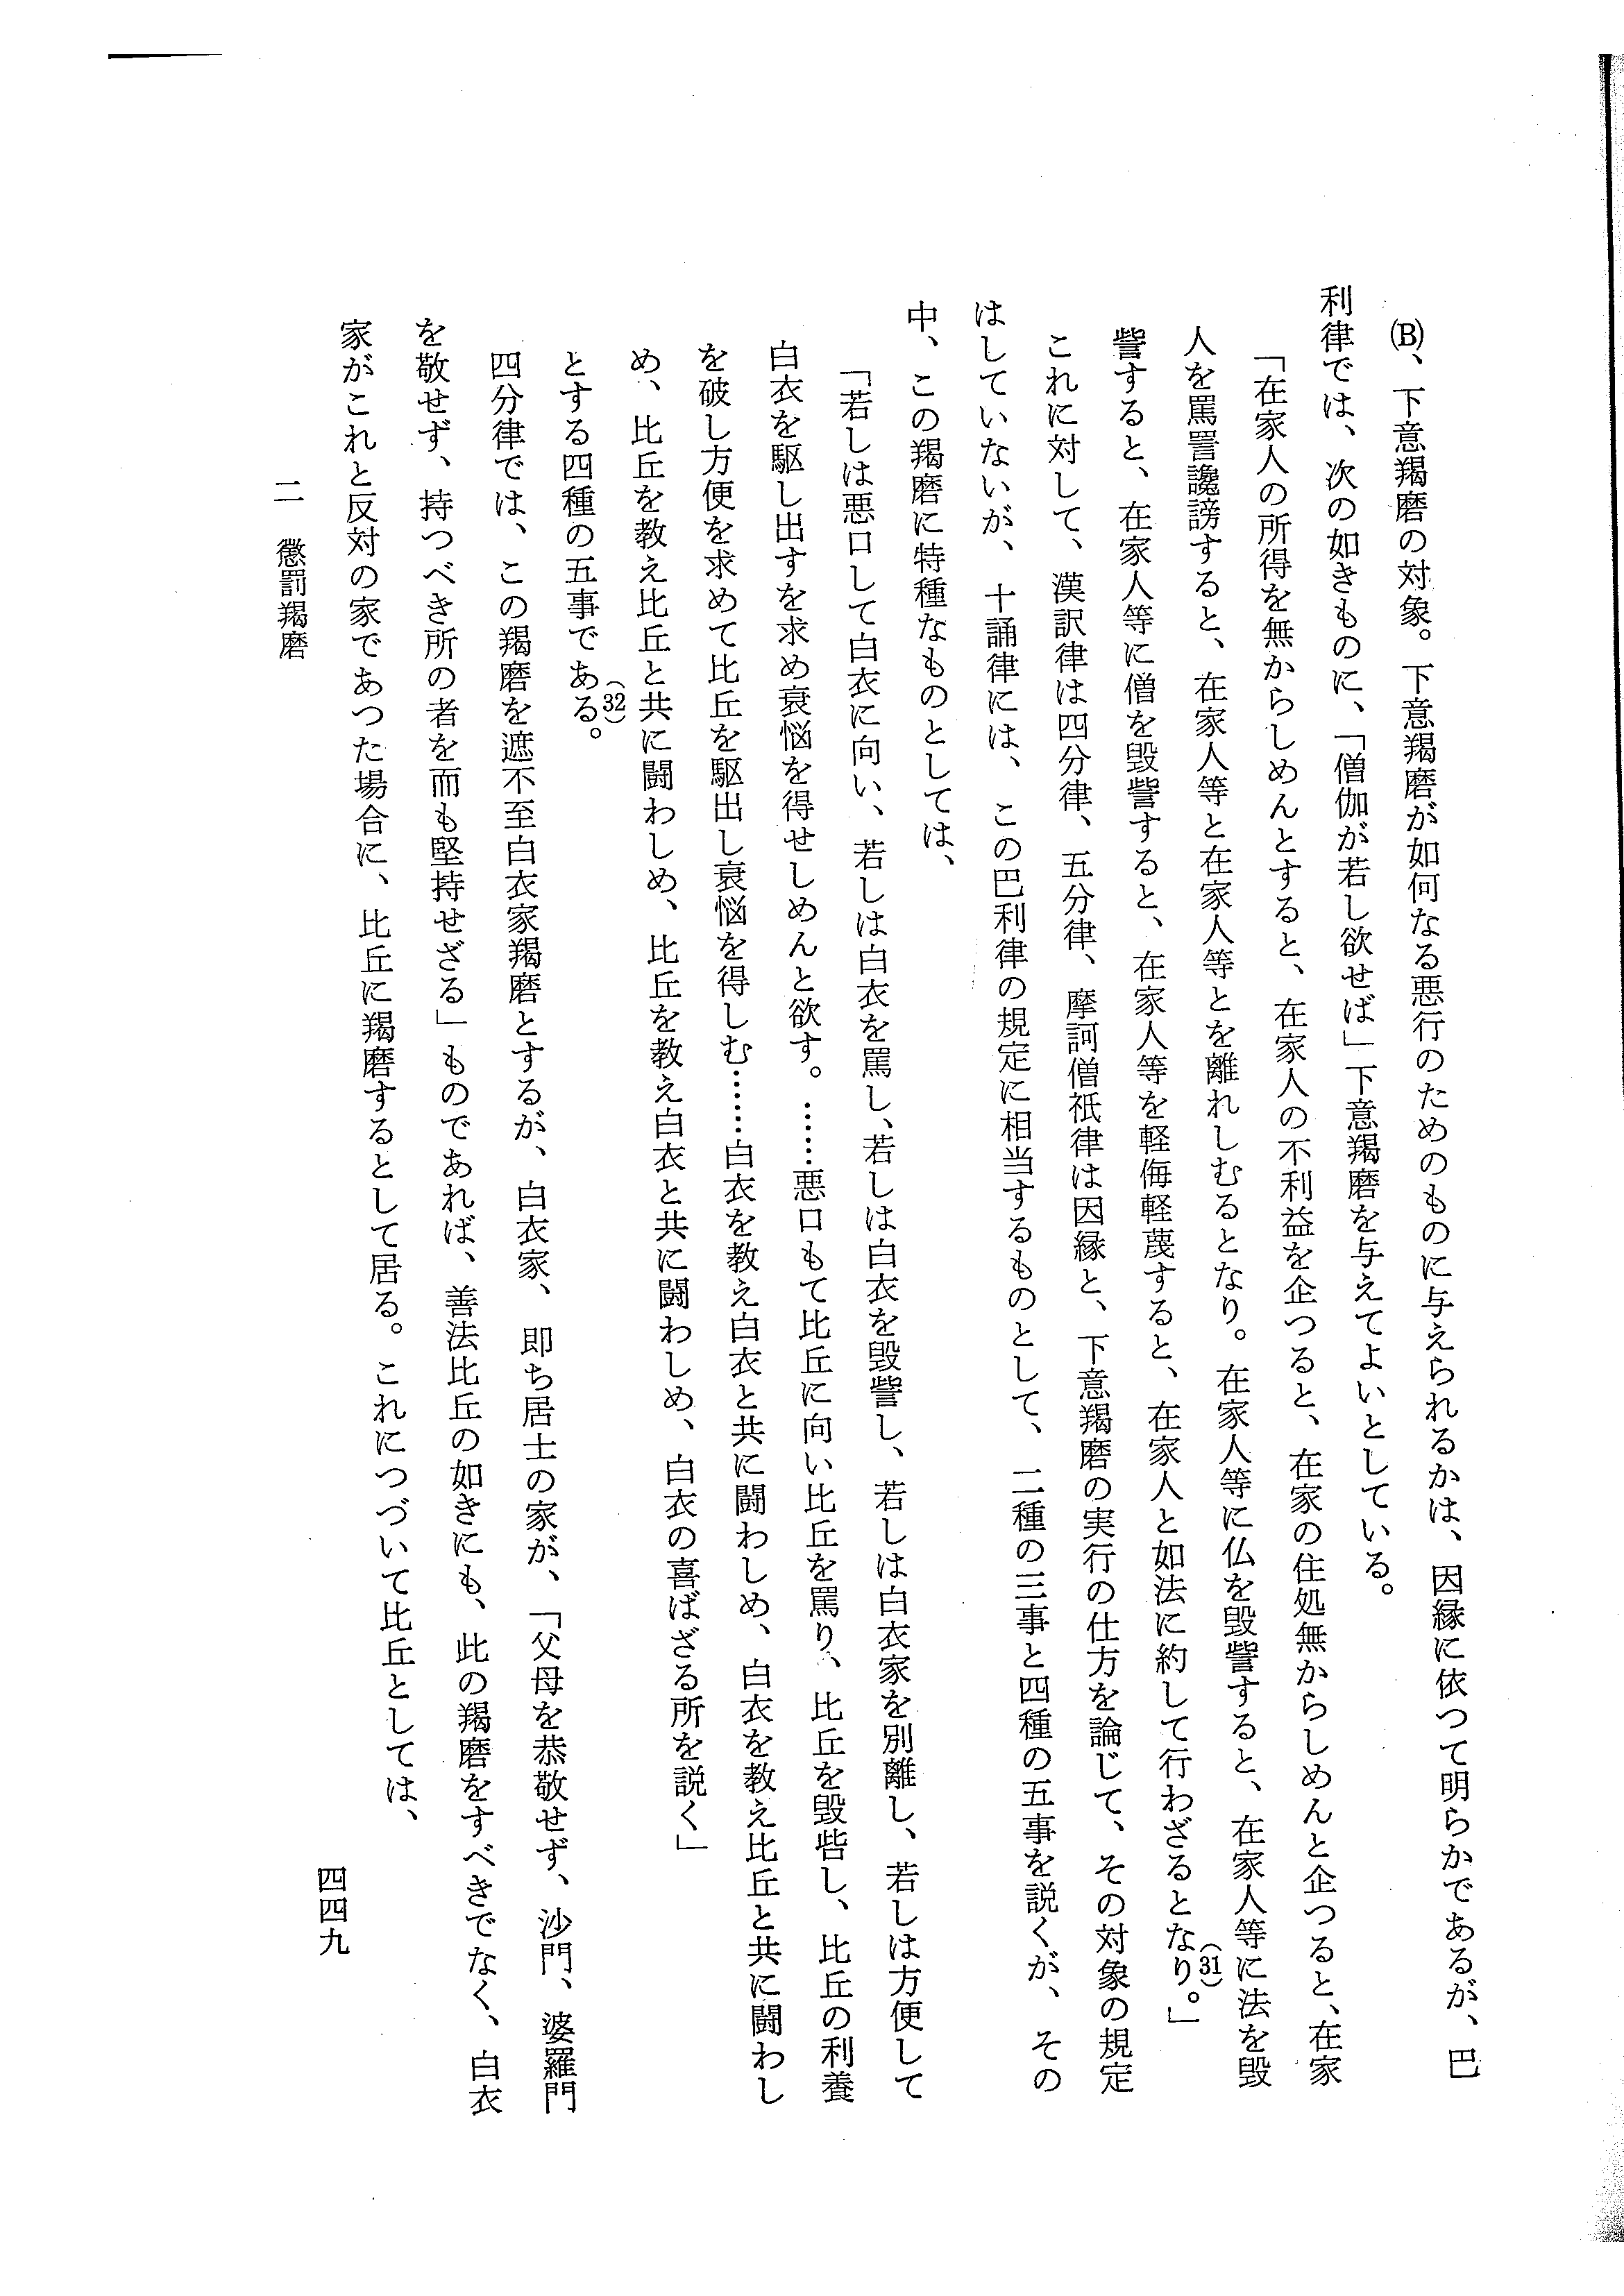 (B)、下意羯磨の対象。下意羯磨が如何なる悪行のためのものに与えられるかは、因縁に依つて明らかであるが、巴
利律では、次の如きものに、「僧伽が若し欲せば」下意羯磨を与えてよいとしている。
「在家人の所得を無からしめんとすると、在家人の不利益を企つると、在家の住処無からしめんと企つると、在家
人を罵詈讒謗すると、在家人等と在家人等とを離れしむるとなり。在家人等に仏を毀訾すると、在家人等に法を毀
訾すると、在家人等に僧を毀訾すると、在家人等を軽侮軽蔑すると、在家人と如法に約して行わざるとなり。」(31)
これに対して、漢訳律は四分律、五分律、摩訶僧祇律は因縁と、下意羯磨の実行の仕方を論じて、その対象の規定
はしていないが、十誦律には、この巴利律の規定に相当するものとして、二種の三事と四種の五事を説くが、その
中、この羯磨に特種なものとしては、
「若しは悪口して白衣に向い、若しは白衣を罵し、若しは白衣を毀訾し、若しは白衣家を別離し、若しは方便して
白衣を駆し出すを求め衰悩を得せしめんと欲す。……悪口もて比丘に向い比丘を罵り、比丘を毀呰し、比丘の利養
を破し方便を求めて比丘を駆出し衰悩を得しむ……白衣を教え白衣と共に闘わしめ、白衣を教え比丘と共に闘わし
め、比丘を教え比丘と共に闘わしめ、比丘を教え白衣と共に闘わしめ、白衣の喜ばざる所を説く」
とする四種の五事である。(32)
四分律では、この羯磨を遮不至白衣家羯磨とするが、白衣家、即ち居士の家が、「父母を恭敬せず、沙門、婆羅門
を敬せず、持つべき所の者を而も堅持せざる」ものであれば、善法比丘の如きにも、此の羯磨をすべきでなく、白衣
家がこれと反対の家であつた場合に、比丘に羯磨するとして居る。これにつづいて比丘としては、
二 懲罰羯磨
四四九